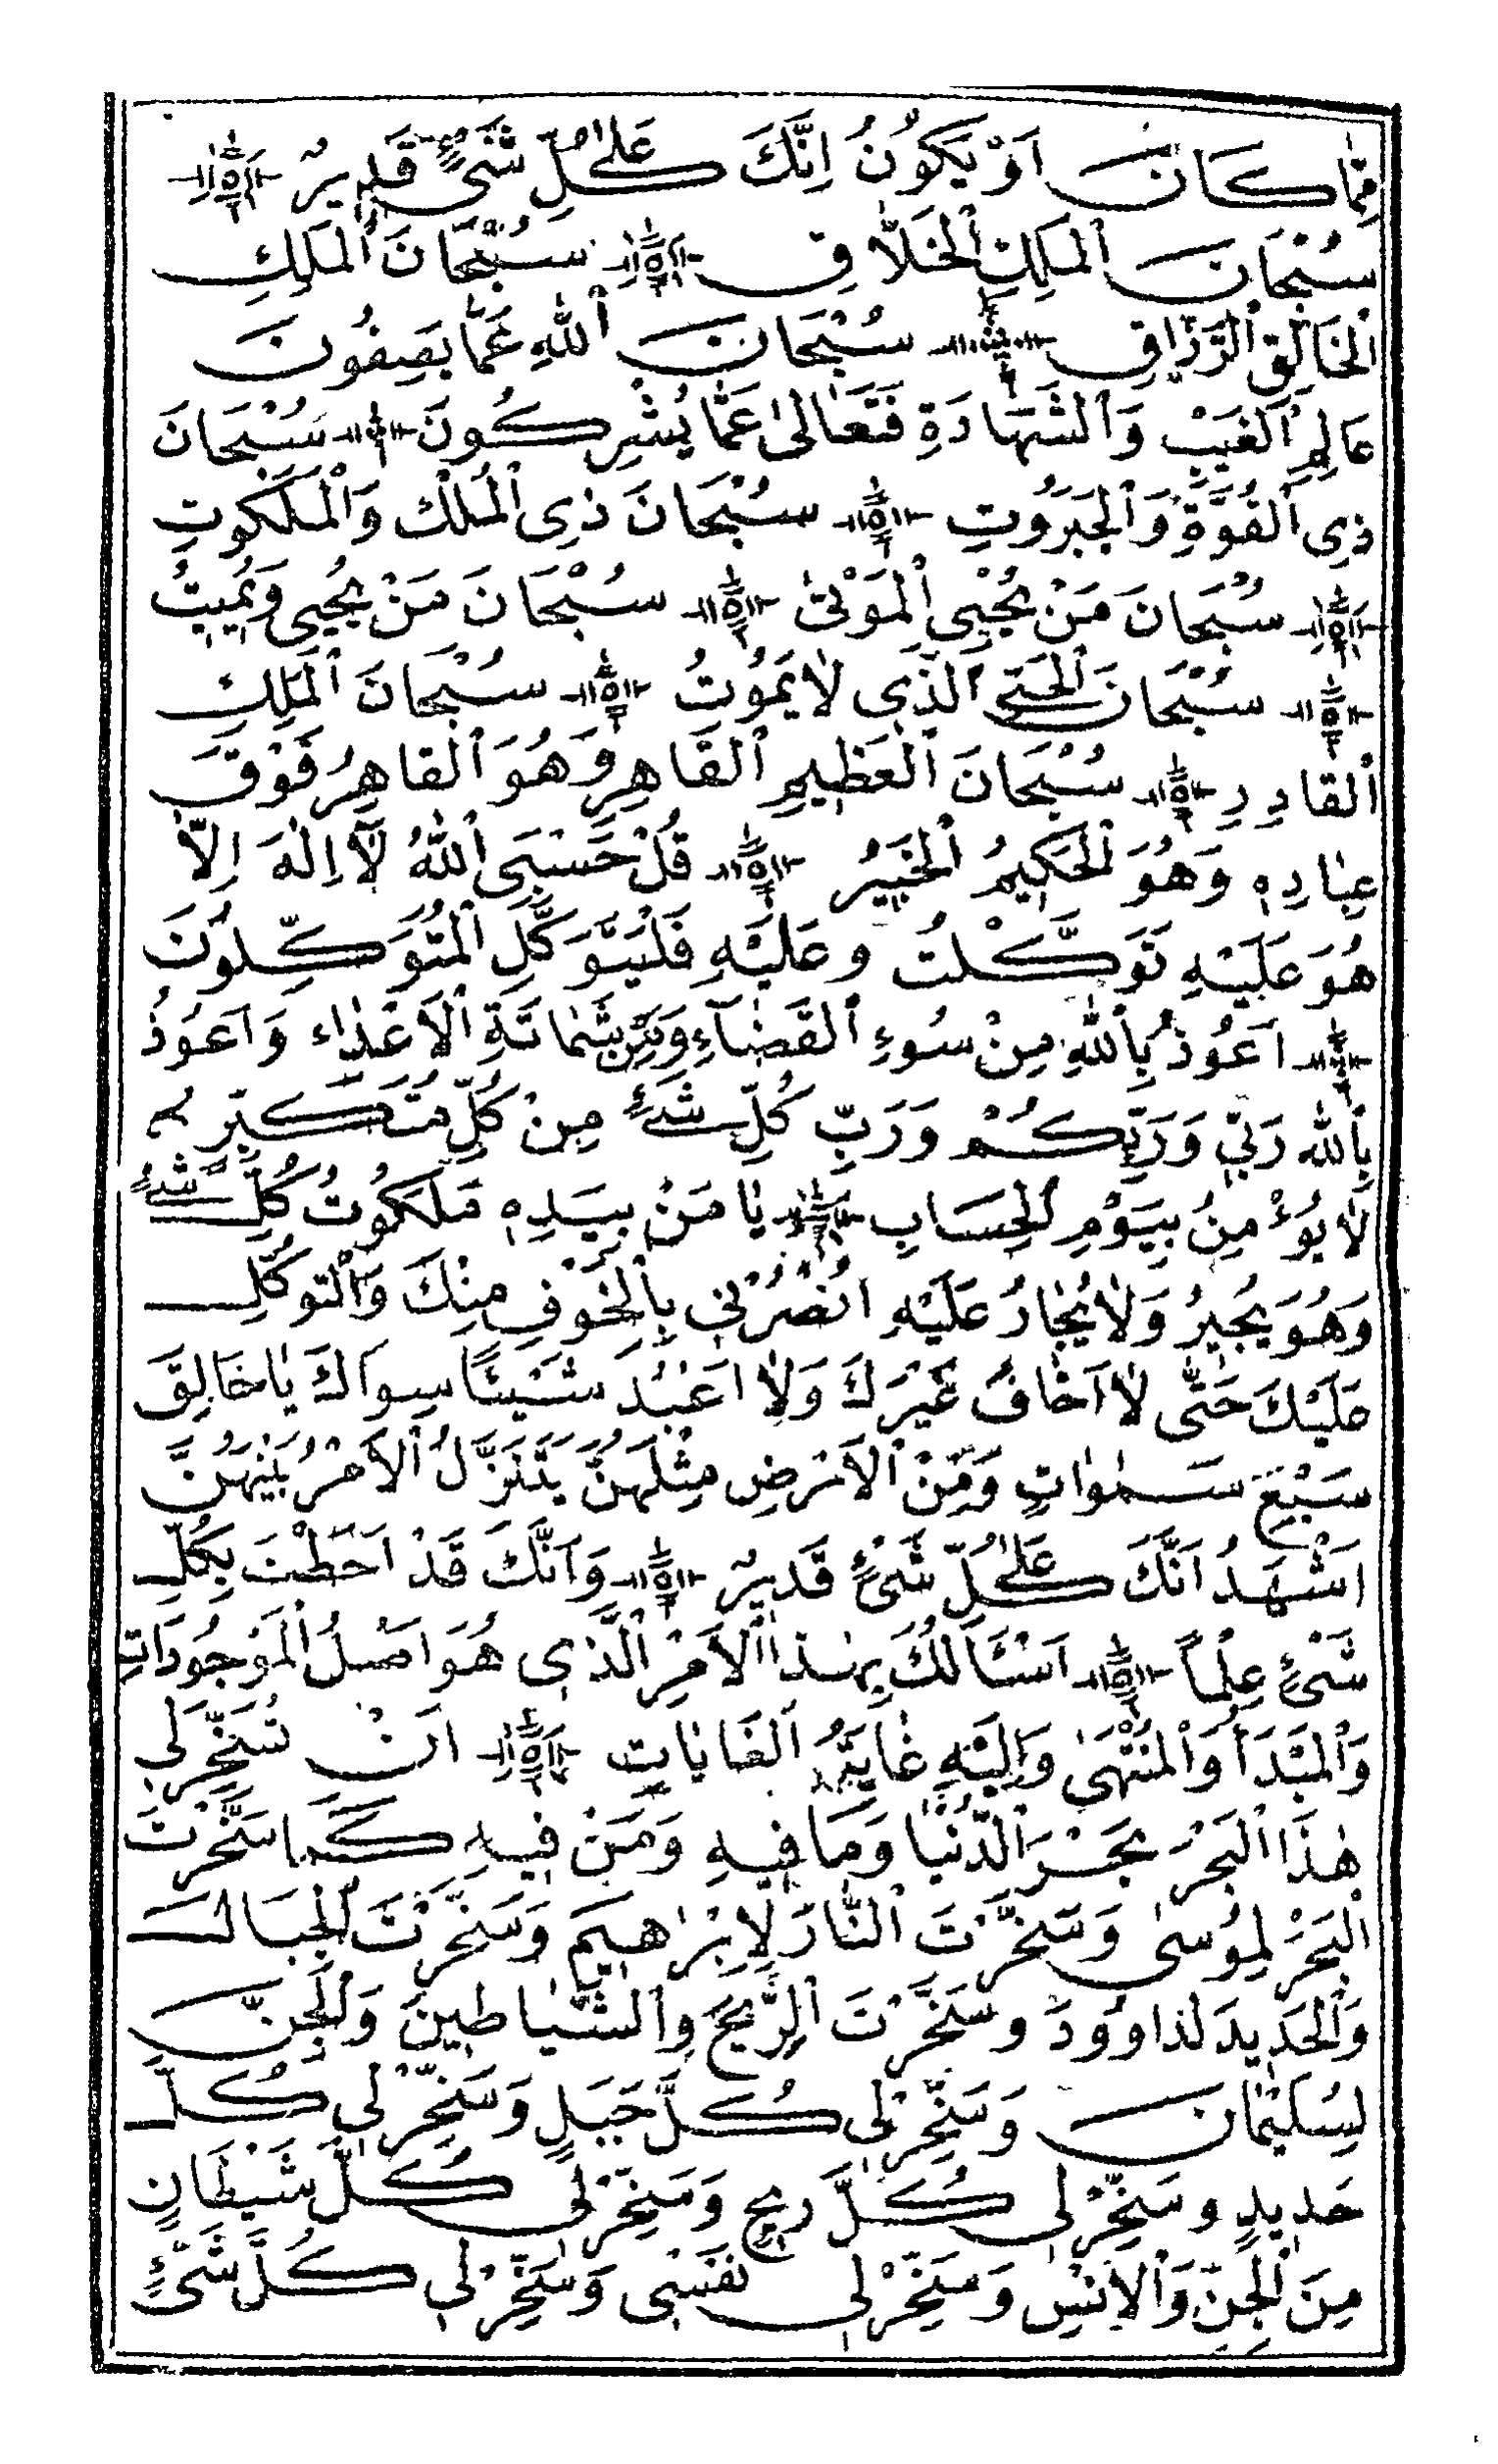 مِمَّا كَانَ اَوْ يَكُونُ اِنَّكَ عَلٰى كُلِّ شَىْءٍ قَدِيرٌ
سُبْحَانَ ٱلْمَلِكِ ٱلْخَلَّاقِ سُبْحَانَ ٱلْمَلِكِ
ٱلْخَالِقِ ٱلرَّزَّاقِ سُبْحَانَ ٱللّٰهِ عَمَّا يَصِفُونَ
عَالِمِ ٱلْغَيْبِ وَٱلشَّهَادَةِ فَتَعَالٰى عَمَّا يُشْرِكُونَ سُبْحَانَ
ذِى ٱلْقُوَّةِ وَٱلْجَبَرُوتِ سُبْحَانَ ذِى ٱلْمُلْكِ وَٱلْمَلَكُوتِ
سُبْحَانَ مَنْ يُحْيِى ٱلْمَوْتٰى سُبْحَانَ مَنْ يُحْيِى وَيُمِيتُ
سُبْحَانَ ٱلْحَىِّ ٱلَّذِى لَا يَمُوتُ سُبْحَانَ ٱلْمَلِكِ
ٱلْقَادِرِ سُبْحَانَ ٱلْعَظِيمِ ٱلْقَاهِرِ وَهُوَ ٱلْقَاهِرُ فَوْقَ
عِبَادِهِ وَهُوَ ٱلْحَكِيمُ ٱلْخَبِيرُ قُلْ حَسْبِىَ ٱللّٰهُ لَآ اِلٰهَ اِلَّا
هُوَ عَلَيْهِ تَوَكَّلْتُ وعَلَيْهِ فَلْيَتَوَكَّلِ ٱلْمُتَوَكِّلُونَ
اَعُوذُ بِٱللّٰهِ مِنْ سُوءِ ٱلْقَضَآءِ وَمِنْ شَمَاتَةِ ٱلْاَعْدَاءِ وَاَعُوذُ
بِٱللّٰهِ رَبِّى وَرَبِّكُمْ وَرَبِّ كُلِّ شَىْءٍ مِنْ كُلِّ مُتَكَبِّرٍ
لَا يُؤْمِنُ بِيَوْمِ ٱلْحِسَابِ يَا مَنْ بِيَدِهِ مَلَكُوتُ كُلِّ شَىْءٍ
وَهُوَ يُجِيرُ وَلَا يُجَارُ عَلَيْهِ اُنْصُرْنِى بِٱلْخَوْفِ مِنْكَ وَٱلتَّوَكُّلِ
عَلَيْكَ حَتّٰى لَا اَخَافَ غَيْرَكَ وَلَا اَعْبُدَ شَيْئًا سِوَاكَ يَا خَالِقَ
سَبْعَ سَمٰوَاتٍ وَمِنَ ٱلْاَرْضِ مِثْلَهُنَّ يَتَنَزَّلُ ٱلْاَمْرُ بَيْنَهُنَّ
اَشْهَدُ اَنَّكَ عَلٰى كُلِّ شَىْءٍ قَدِيرٌ وَاَنَّكَ قَدْ اَحَطْتَ بِكُلِّ
شَىْءٍ عِلْمًا اَسْئَالُكَ بِهٰذَا ٱلْاَمْرِ ٱلَّذِى هُوَ اَصْلُ ٱلْمَوْجُودَاتِ
وَٱلْمَبْدَأُ وَٱلْمُنْتَهٰى وَاِلَيْهِ غَايَةُ ٱلْغَايَاتِ اَنْ تُسَخِّرَ لِى
هٰذَا ٱلْبَحْرَ بَحْرَ ٱلدُّنْيَا وَمَا فِيهِ وَمَنْ فِيهِ كَمَا سَخَّرْتَ
ٱلْبَحْرَ لِمُوسٰى وَسَخَّرْتَ ٱلنَّارَ لِاِبْرٰهِيمَ وَسَخَّرْتَ ٱلْجِبَالَ
وَٱلْحَدِيدَ لِدَاوُودَ وسَخَّرْتَ ٱلرِّيحَ وٱلشَّيَاطِينَ وَٱلْجِنَّ
لِسُلَيْمَانَ وَسَخِّرْ لِى كُلَّ جَبَلٍ وَسَخِّرْ لِى كُلَّ
حَدِيدٍ وسَخِّرْ لِى كُلَّ رِيحٍ وَسَخِّرْ لِى كُلَّ شَيْطَانٍ
مِنَ ٱلْجِنِّ وَٱلْاِنْسِ وَسَخِّرْ لِى نَفْسِى وَسَخِّرْ لِى كُلَّ شَىْءٍ